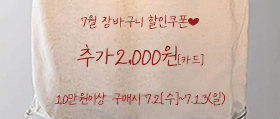 7월 장바구니 할인쿠폰♥
추가2,000원[카드]
10만원이상 구매시 7.2[수]~7.13(일)